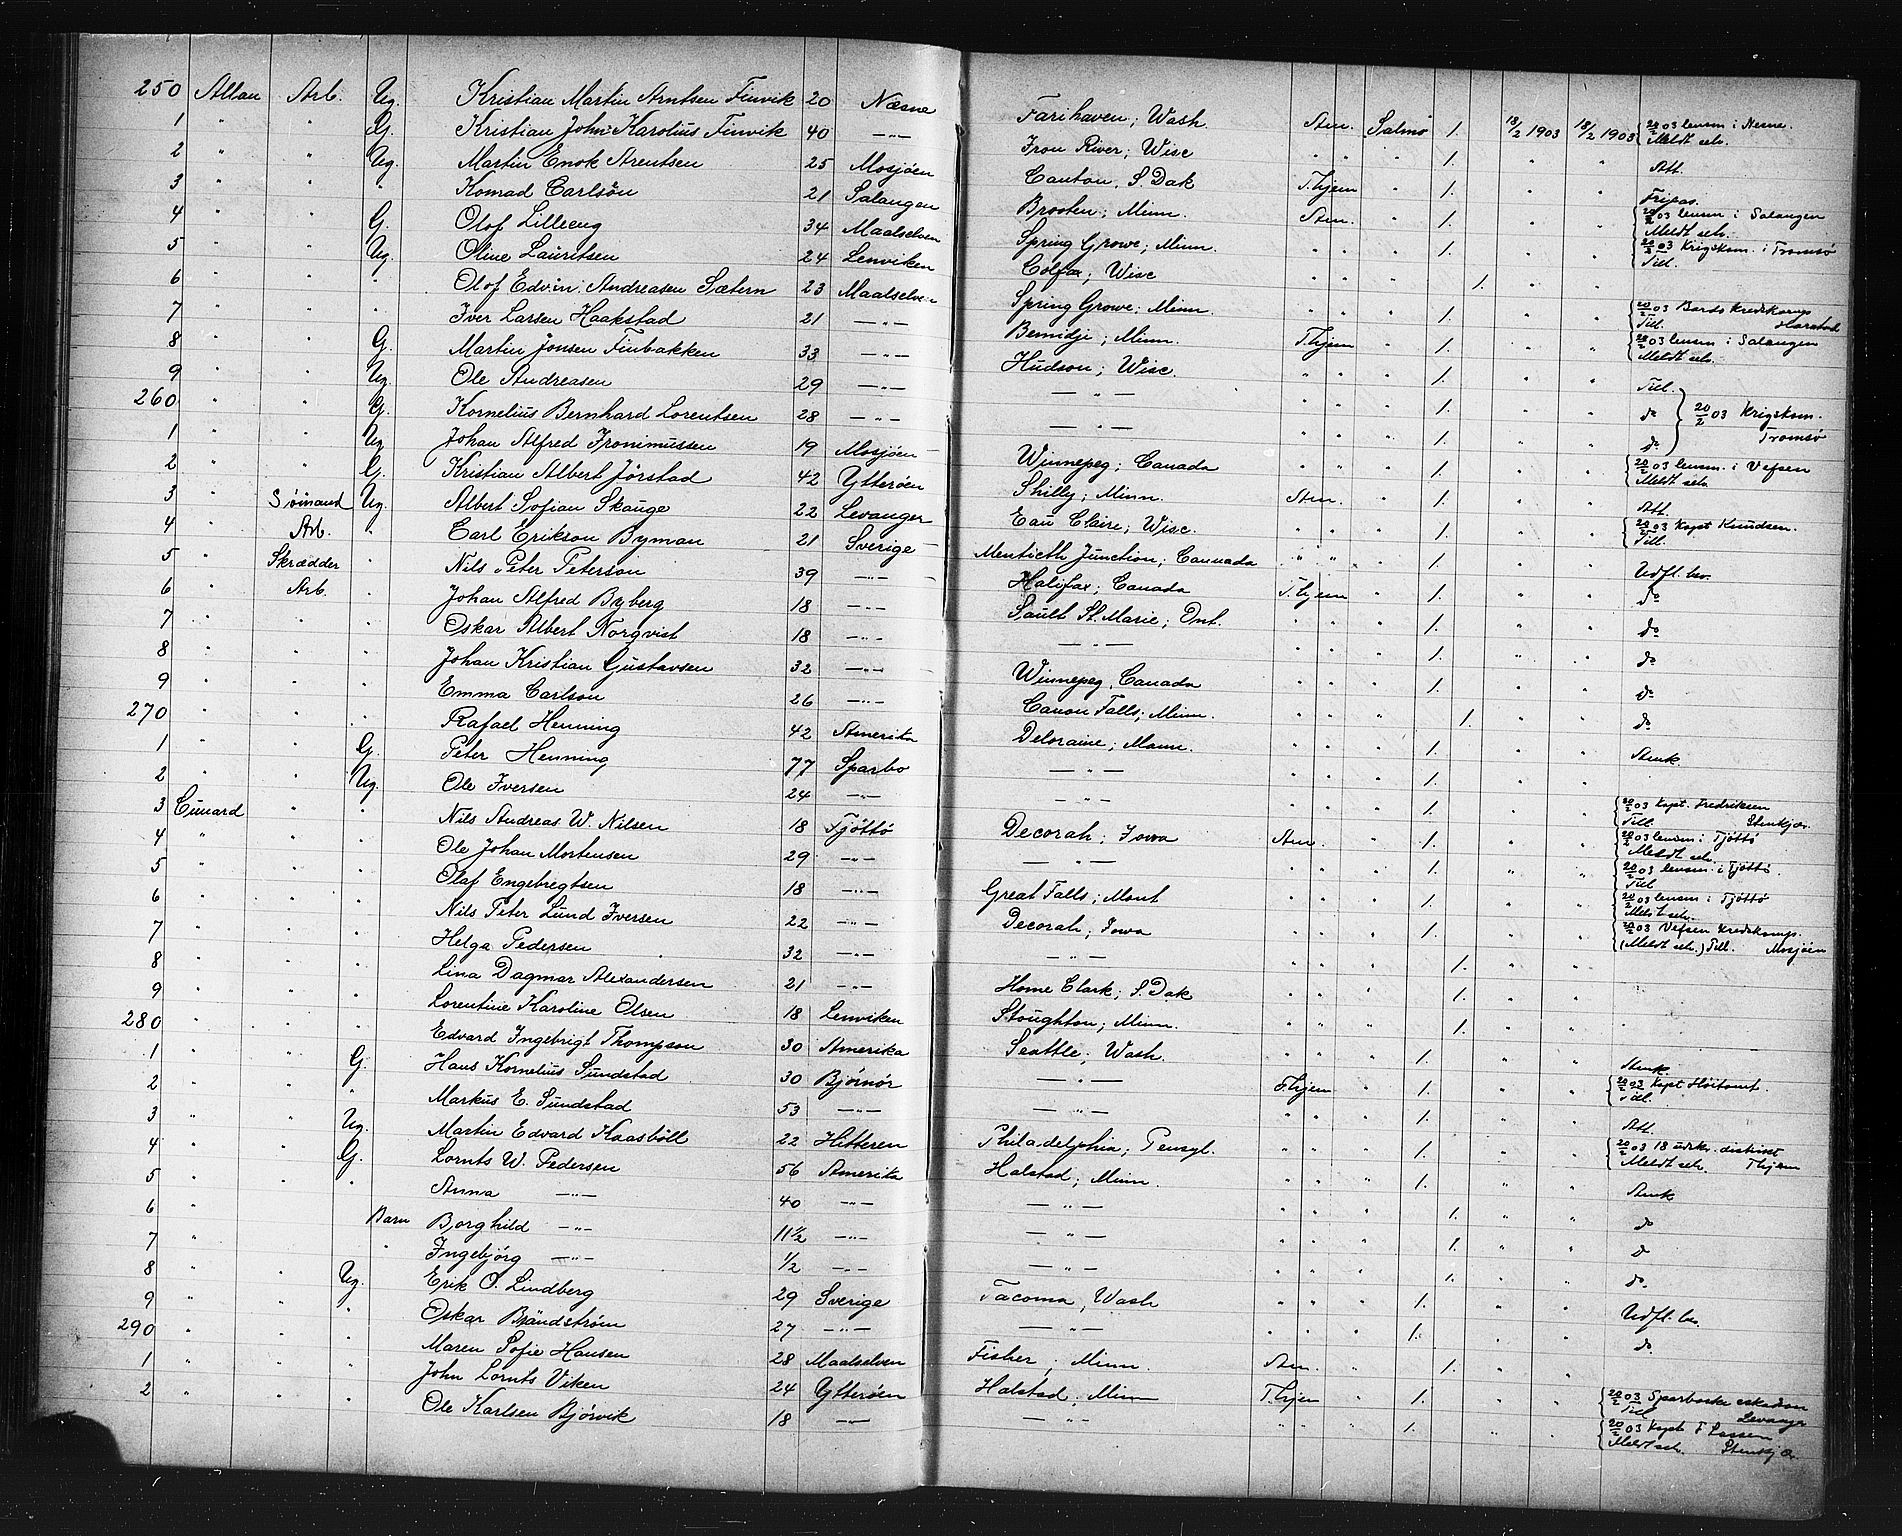 250 Allan Arb. Ug. Kristian Martin Arntsen Finvik 20 Næsne Farihaven; Wash. Am. Salmo 1. 18/2 1903 18/2 1903 20/2 03 lensm. i Nesne. Meldt selv.
1 " " G. Kristian John Karolius Finvik 40 —"— Iron River; Wisc " " " 1. " " Att.
2 " " Ug. Martin Enok Arentsen 25 Mosjöen Canton, S. Dak T.hjem " " 1. " " Fripas.
3 " " " Konrad Carlsön 21 Salangen Brooten; Minn. Am. " " 1. " " 20/2 03 lensm i Salangen Meldt selv.
4 " " G. Olof Lilleeng 34 Maalselven Spring Growe; Minn. " " " 1. " " 20/2 03 Krigskom. i Tromsø Till.
5 " " Ug. Oline Lauritsen 24 Lenviken Colfax; Wisc " " " 1. " "
6 " " " Olof Edvin Andreasen Sætern 23 Maalselven Spring Growe; Minn. " " " 1. " " 20/2 03 Bardo Kredskomp Harstad Till.
7 " " " Iver Larsen Haakstad 21 —"— Bemidji; Minn. T.hjem " " 1. " " 20/2 03 lensm i Salangen Meldt selv.
8 " " G. Martin Jonsen Finbakken 33 —"— Hudson; Wisc. " " " 1. " " Till.
9 " " Ug. Ole Andreasen 29 —"— — " — " " " 1. " " do 20/2 03 Krigskom. Tromsø
260 " " G. Kornelius Bernhard Lorentsen 28 —"— — " — " " " 1. " " do
1 " " Ug. Johan Alfred Fronimussen 19 Mosjöen Winnepeg; Canada " " " 1. " " 20/2 03 lensm. i Vefsen Meldt selv
2 " " G. Kristian Albert Jörstad 42 Ytteröen Shilly; Minn. Am. " " 1. " " Att.
3 " Sömand Ug. Albert Sofian Skauge 22 Levanger Eau Claire; Wisc. " " " 1. " " 20/2 03 Kapt Knudsen. Till.
4 " Arb. " Carl Erikson Byman 21 Sverige Menticth Junction; Cannada " " " 1. " " Udfl. bev.
5 " Skrædder " Nils Peter Peterson 39 —"— Halifax; Canada T.hjem " " 1. " " do
6 " Arb. " Johan Alfred Byberg 18 —"— Sault St. Marie; Ont. " " " 1. " " do
7 " " " Oskar Albert Norqvist 18 —"— — " — " " " 1. " " do
8 " " " Johan Kristian Gustavsen 32 —"— Winnepeg, Canada " " " 1. " " do
9 " " " Emma Carlson 26 —"— Canon Falls; Minn. " " " 1. " " do
270 " " " Rafael Henning 42 Amerika Deloraine; Mann. " " " 1. " " Amk.
1 " " G. Peter Henning 77 Sparbo — " — " " " 1. " "
2 " " Ug. Ole Iversen 24 —"— — " — " " " 1. " " 20/2 03 Kapt. Fredriksen Till. Stenkjær.
3 Cunard " " Nils Andreas W. Nilsen 18 Tjöttö Decorah; Iowa Am. " " 1. " " 20/2 03 lensm: i Tjöttö Meldt selv.
4 " " " Ole Johan Mortensen 29 —"— — " — " " " 1. " " 20/2 03 lensm. i Tjöttö. Till
5 " " " Olaf Engebregtsen 18 —"— Great Falls; Mont " " " 1. " " 20/2 03 lensm i Tjöttö Meldt selv.
6 " " " Nils Peter Lund Iversen 22 —"— Decorah; Iowa " " " 1. " " 20/2 03 Vefsen Kredskomp. (Meldt selv.) Till. Mosjöen
7 " " " Helga Pedersen 32 —"— — " — " " " 1. " "
8 " " " Lina Dagmar Alexandersen 21 —"— Home Clark; S. Dak " " " 1. " "
9 " " " Lorentine Karoline Olsen 18 Lenviken Stoughton; Minn. " " " 1. " "
280 " " " Edvard Ingebrigt Thompson 30 Amerika Seattle; Wash. " " " 1. " " Amk.
1 " " G. Hans Kornelius Sundstad 30 Björnör — " — T.hjem " " 1. " " 20/2 03 Kapt Höitomt. Till.
2 " " " Markus E. Sundstad 53 —"— — " — " " " 1. " " Att.
3 " " Ug. Martin Edvard Kaasböll 22 Hitteren Philadelphia; Pensyl. " " " 1. " " 20/2 03 18 udskr. distrikt Meldt selv. Thjem
4 " " G. Lornts W. Pedersen 56 Amerika Halstad; Minn. " " " 1. " " Amk
5 " " " Anna —"— 40 —"— — " — " " " 1. " " do
6 " Barn Borghild —"— 11 1/2 —"— — " — " " " 1. " " do
7 " " Ingebjörg —"— 1/2 —"— — " — " " " 1. " " do.
8 " " Ug. Erik O. Lindberg 29 Sverige Tacoma, Wash " " " 1. " " Udfl. bev.
9 " " " Oskar Brändström 27 —"— — " — " " " 1. " " do.
290 " " " Maren Sofie Hansen 28 Maalselven Fisher; Minn Am. " " 1. " "
1 " " " John Lornts Viken 24 Ytteröen Halstad; Minn T.hjem " " 1. " " 20/2 03 Sparboske eskadron Till Levanger
2 " " " Ole Karlsen Björvik 18 —"— — " — " " " 1. " " 20/2 03 Kapt F Lassen Meldt selv. Stenkjær.